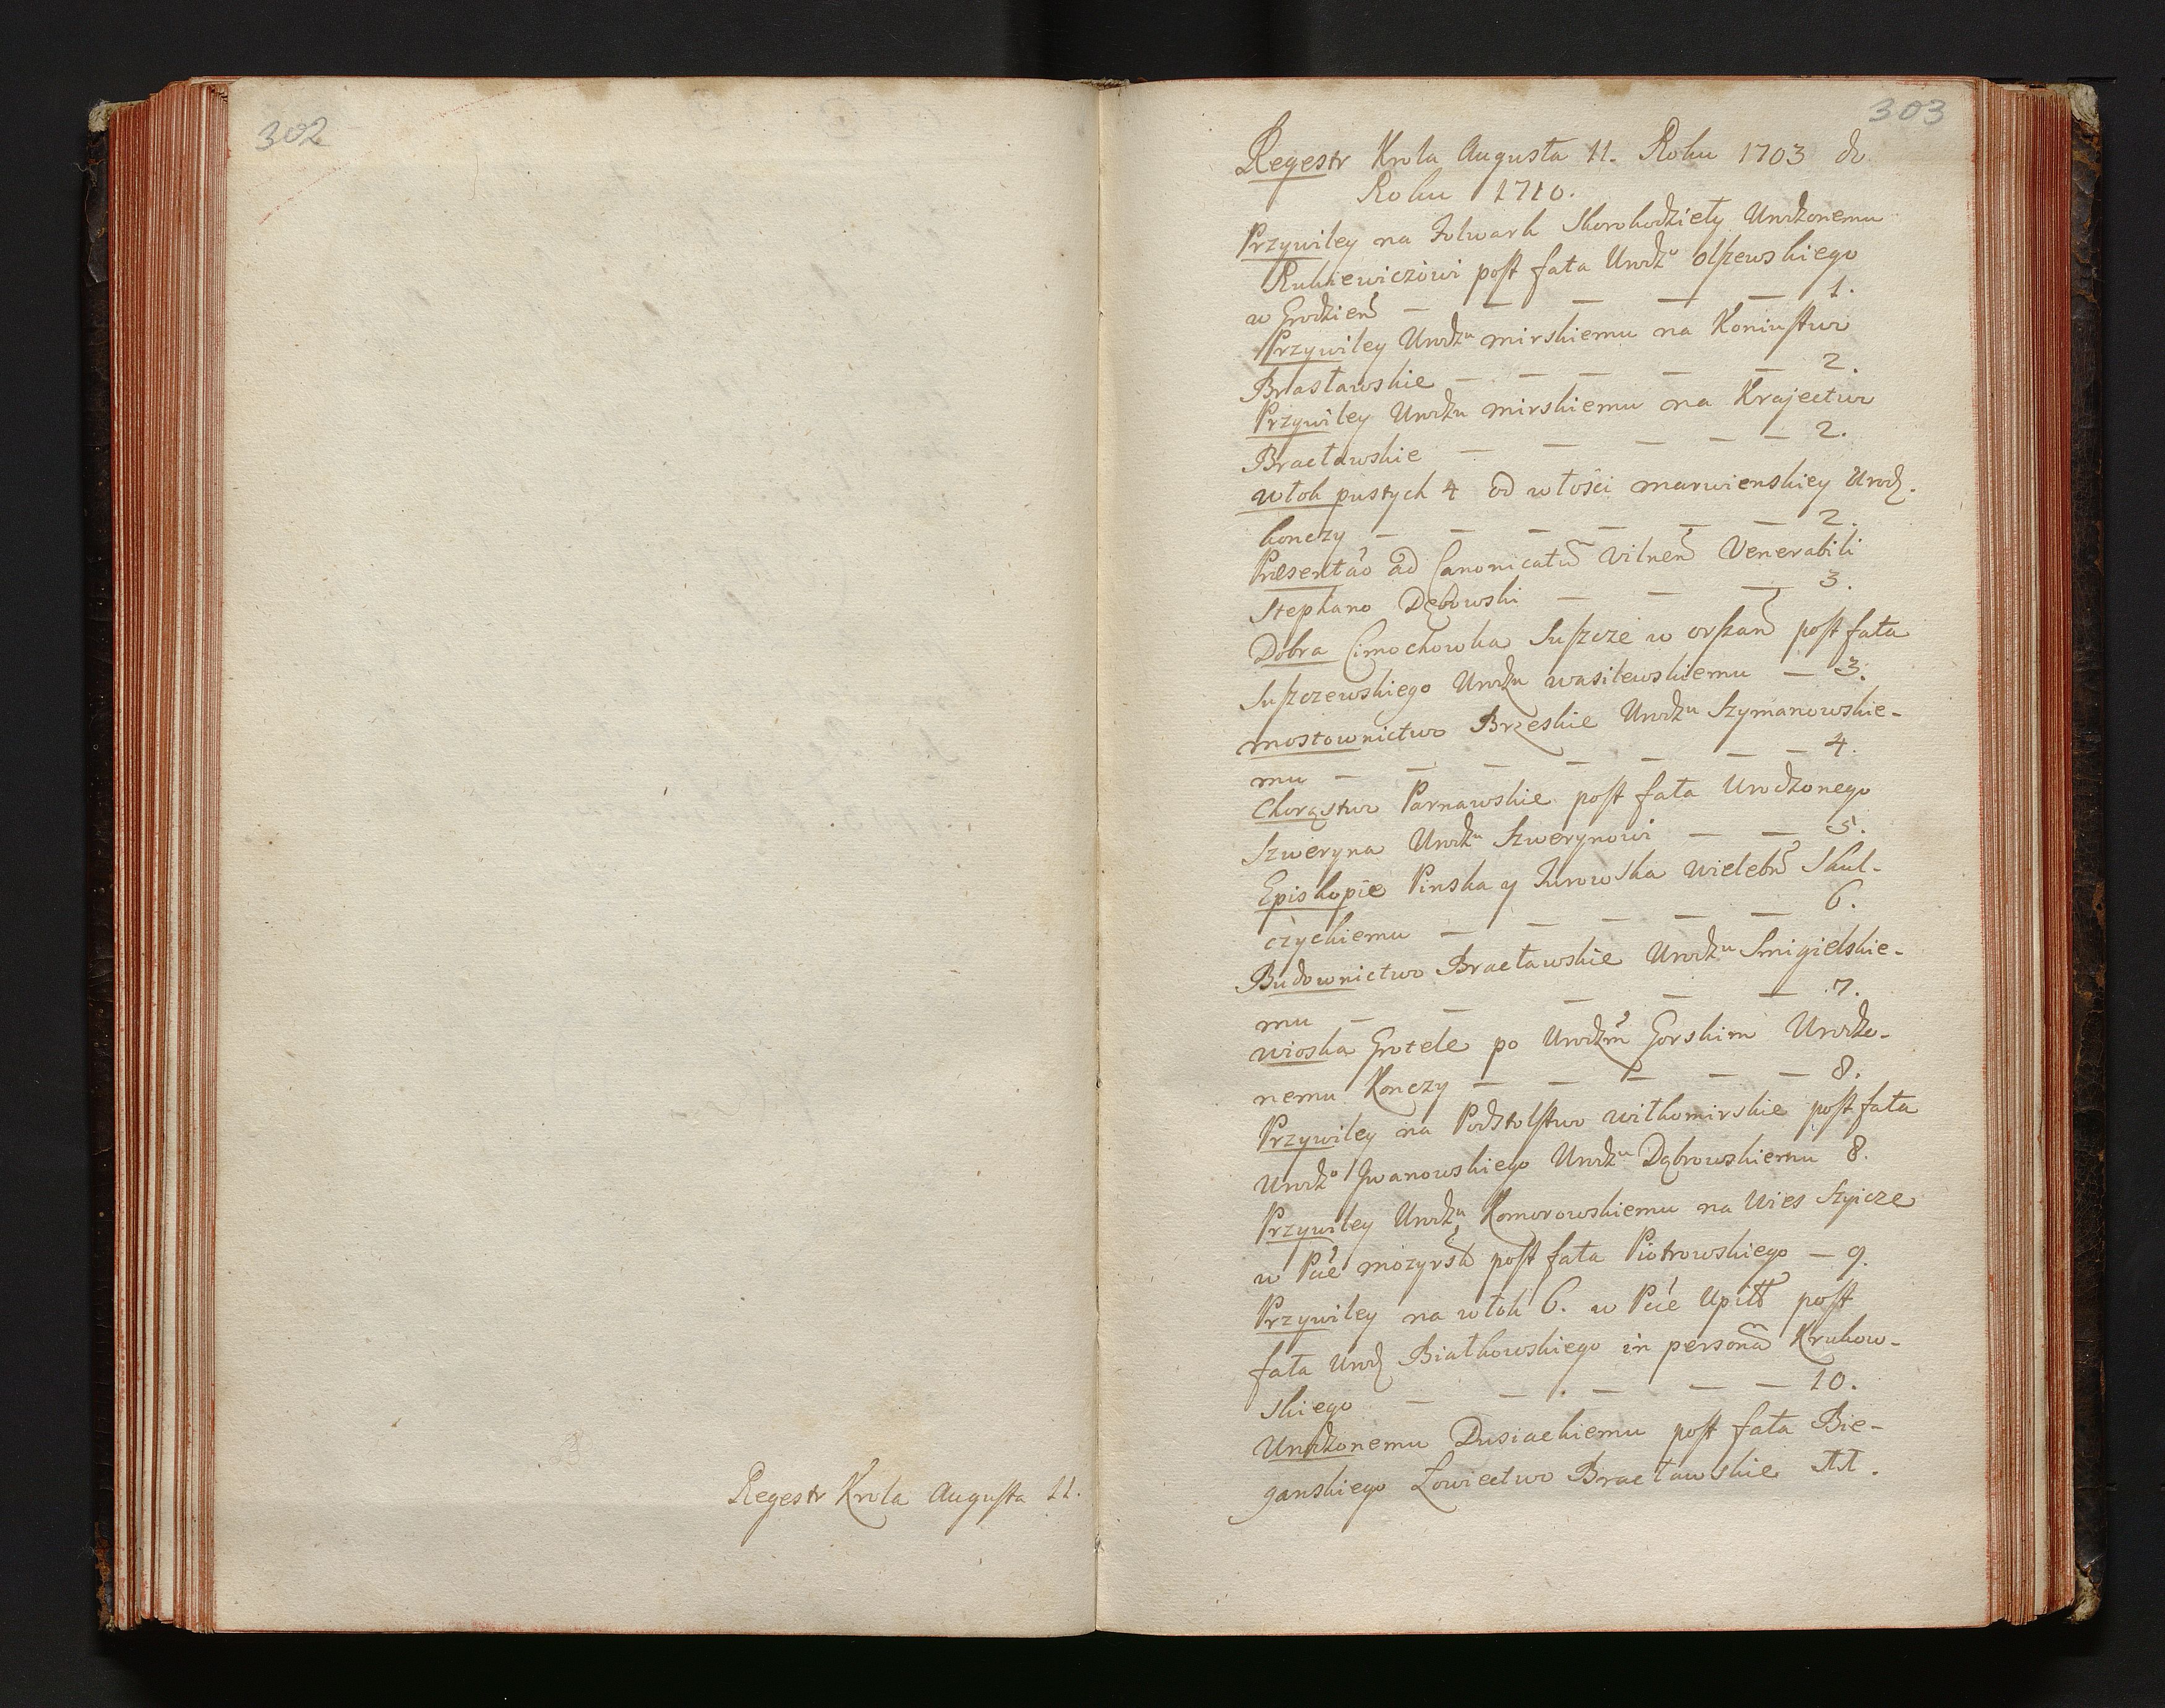 302
Regestr Krola Augusta 11.
303
Regestr Krola Augusta 11. Roku 1703 do
Roku 1710.
Przywiley na Folwark Skorohodziely Urodzonemu
Rukiewiczowi post fata Urodzo Olszewskiego
w Grodzień — — — — — 1.
Przywiley Urodzu Mirskiemu na Koniustwo
Brasławskie — — — — — 2.
Przywiley Urodzu Mirskiemu na Krajectwo
Bracławskie — — — — — 2.
Włok pustych 4 od włości Marwienskiey Urodz.
Konczy — — — — — — 2.
Præsentao ad Canonicatu Vilnen Venerabili
Stephano Dębowski — — — 3.
Dobra Cimochowka Suszcze w Orszan post fata
Suszczewskiego Urodzu Wasilewskiemu — 3.
Mostownictwo Brzeskie Urodzu Szymanowskie-
mu — — — — — — — 4.
Chorąstwo Parnawskie post fata Urodzonego
Szweryna Urodzu Szwerynowi — — 5.
Episkopie Pinska y Turowska Wielebn Skul-
czyckiemu — — — — — 6.
Budownictwo Bracławskie Urodzu Smigielskie-
mu — — — — — 7.
Wioska Grotele po Urodzm Gorskim Urodzo-
nemu Konczy — — — — — 8.
Przywiley na Podstolstwo Wiłkomirskie post fata
Urodzo Jwanowskiego Urodzu Dąbrowskiemu 8.
Przywiley Urodzu Komorowskiemu na Wies Szyicze
w Pcie Mozyrsk post fata Piotrowskiego — 9.
Przywiley na włok 6. w Pcie Upitt post
fata Urodz Białkowskiego in persona Krukow-
skiego — — — — — 10.
Urodzonemu Dusiackiemu post fata Bie-
ganskiego Łowiectwo Bracławskie 11.